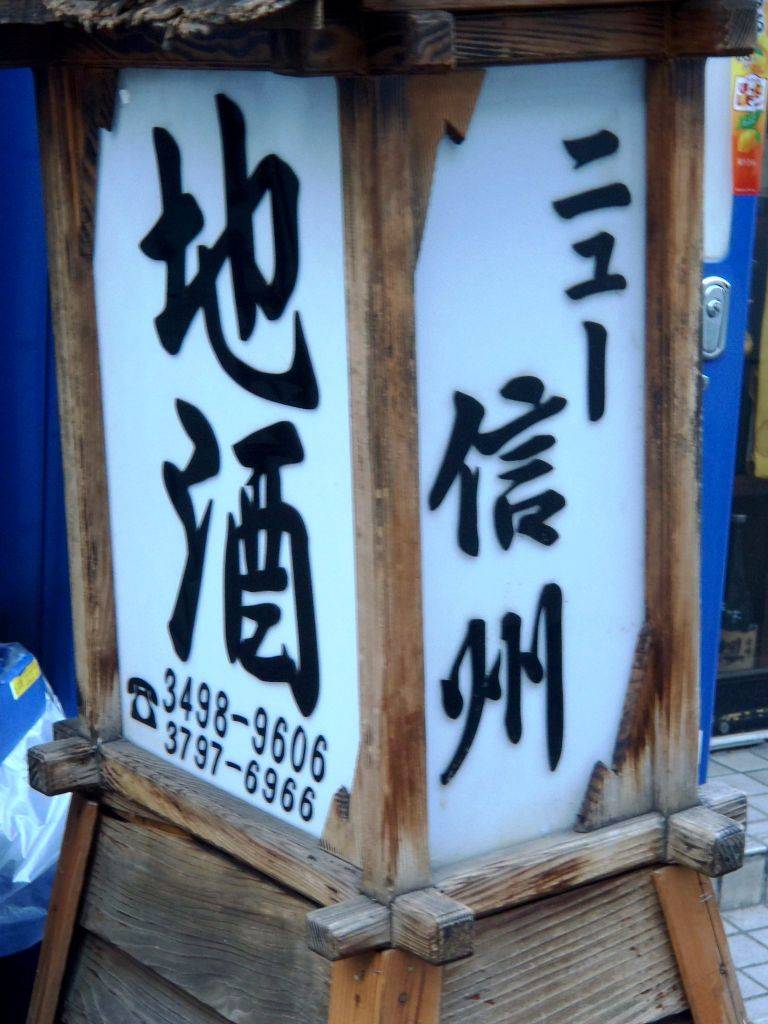 地酒
☎3498-9606
3797-6966
ニュー
信州